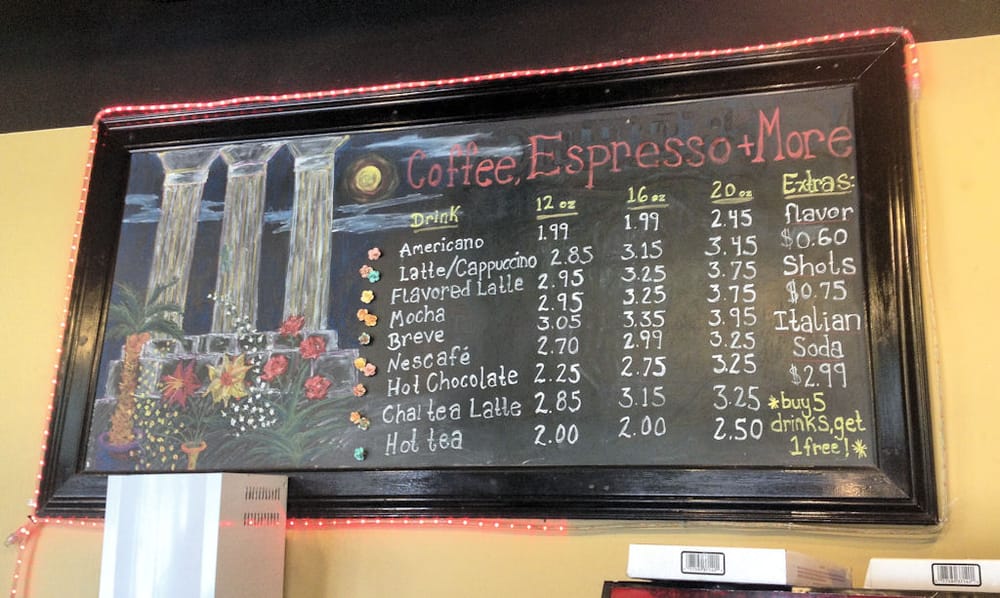 Coffee, Espresso + More
Drink 12 oz 16 oz 20 oz
Americano 1.99 1.99 2.45
Latte/Cappuccino 2.85 3.15 3.45
Flavored Latte 2.95 3.25 3.75
Mocha 2.95 3.25 3.75
Breve 3.05 3.35 3.95
Nescafé 2.70 2.99 3.25
Hot Chocolate 2.25 2.75 3.25
Chai tea Latte 2.85 3.15 3.25
Hot tea 2.00 2.00 2.50
Extras:
flavor
$0.60
Shots
$0.75
Italian
Soda
$2.99
*buy 5
drinks, get
1 free!*